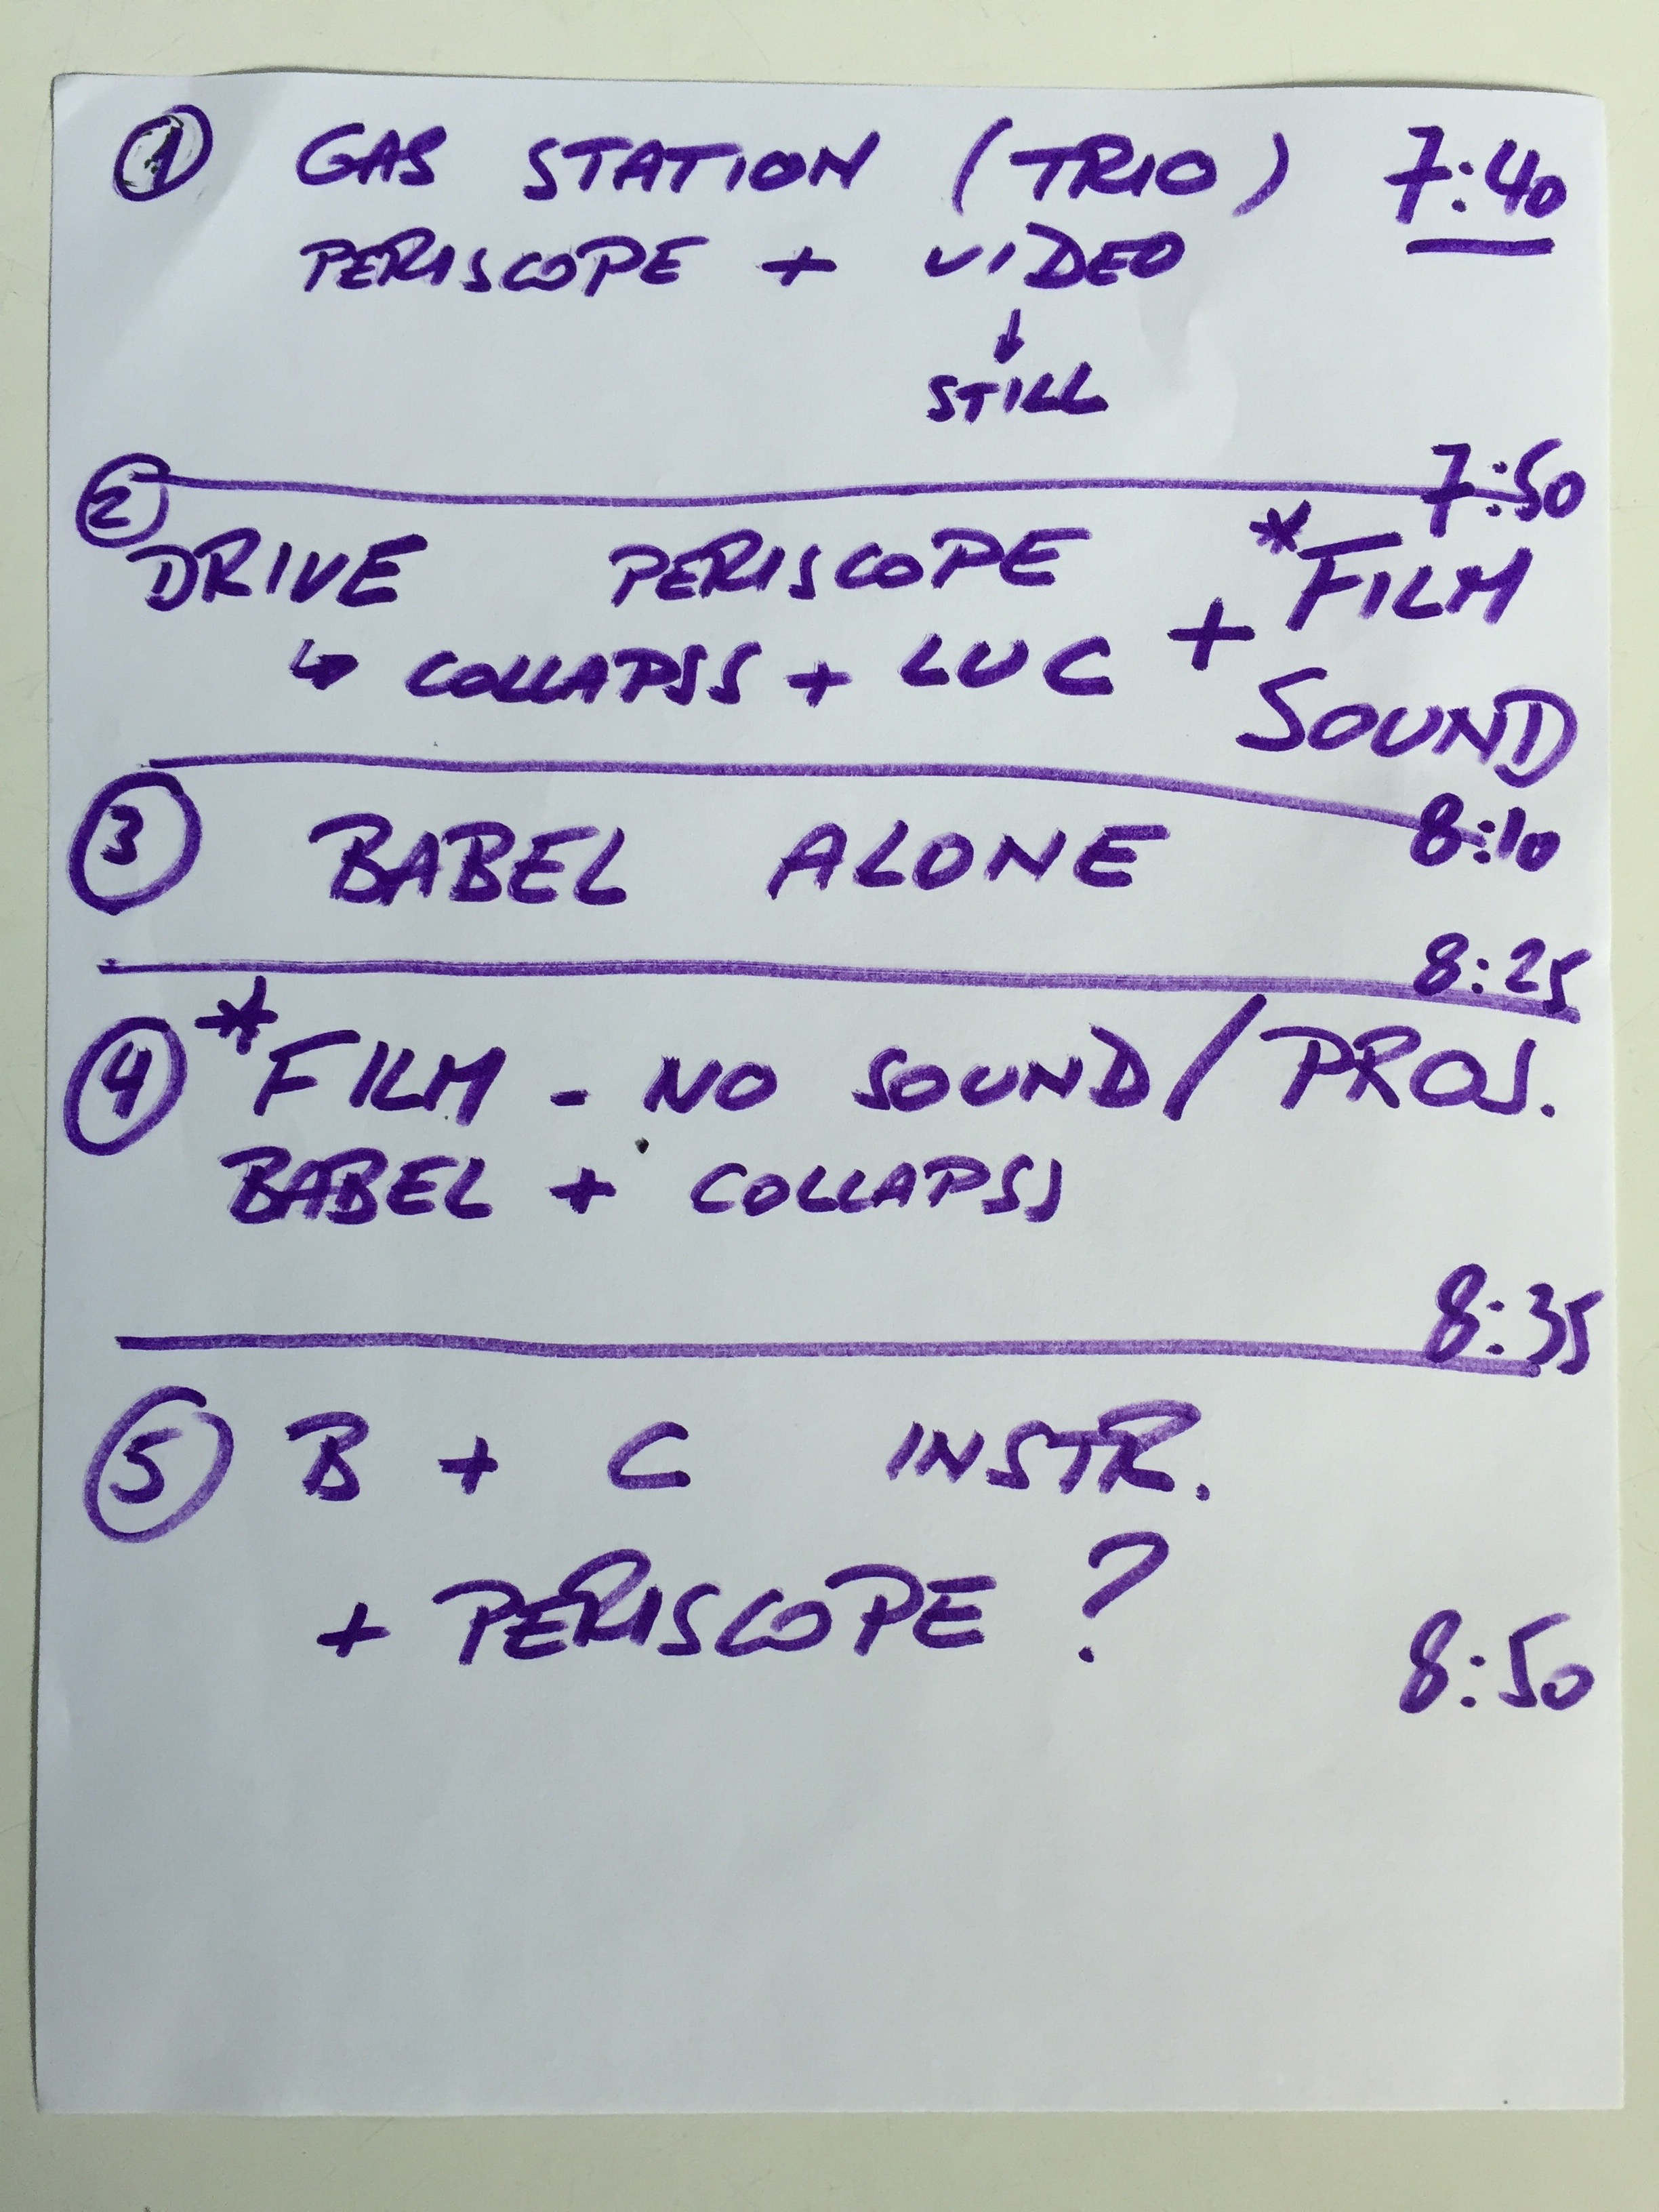 1 GAS STATION (TRIO) 7:40
PERISCOPE + VIDEO
↓
STILL
7:50
2
DRIVE PERISCOPE + *FILM
↳ COLLAPSS + LUC SOUND
3 BABEL ALONE 8:10
8:25
4 *FILM - NO SOUND / PROJ.
BABEL + COLLAPSS
8:35
5 B + C INSTR.
+ PERISCOPE ?
8:50